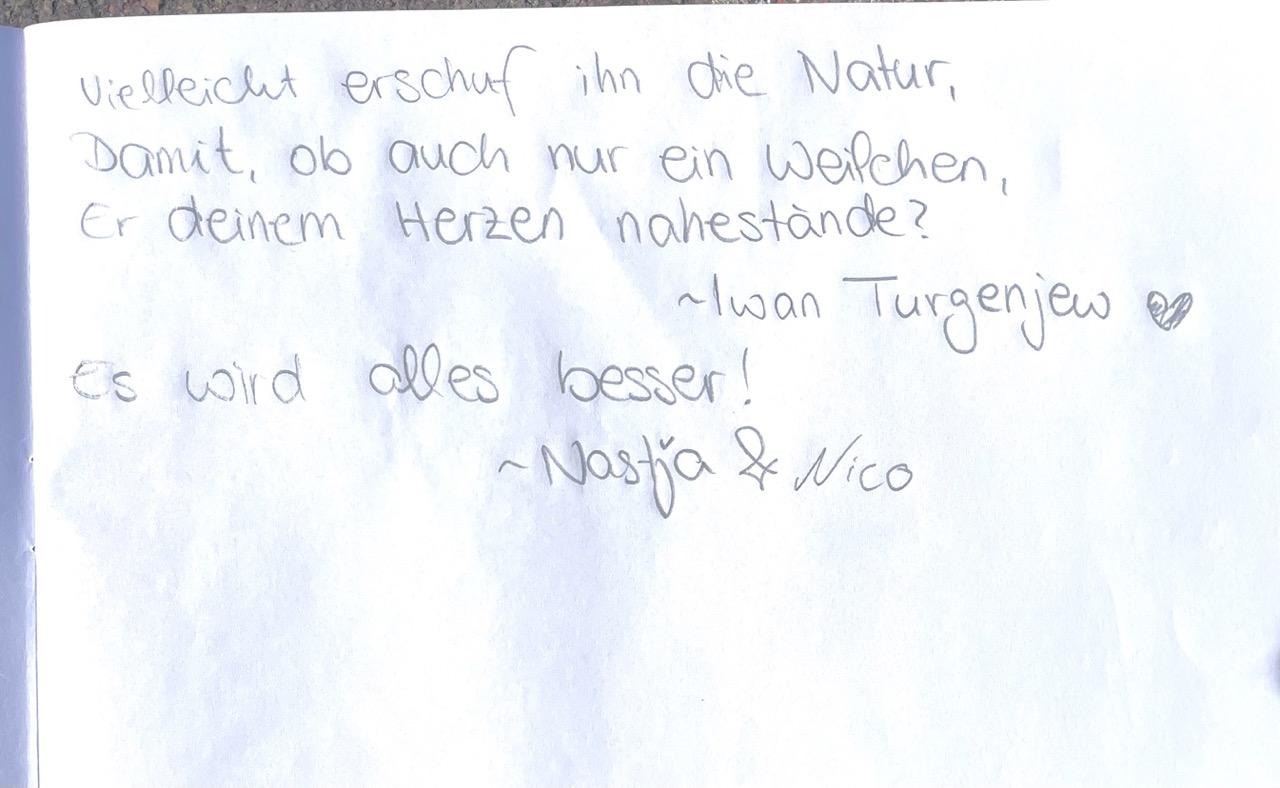 Vielleicht erschuf ihn die Natur,
Damit, ob auch nur ein Weilchen,
Er deinem Herzen nahestände?
~Iwan Turgenjew ♥
Es wird alles besser!
~Nastja & Nico